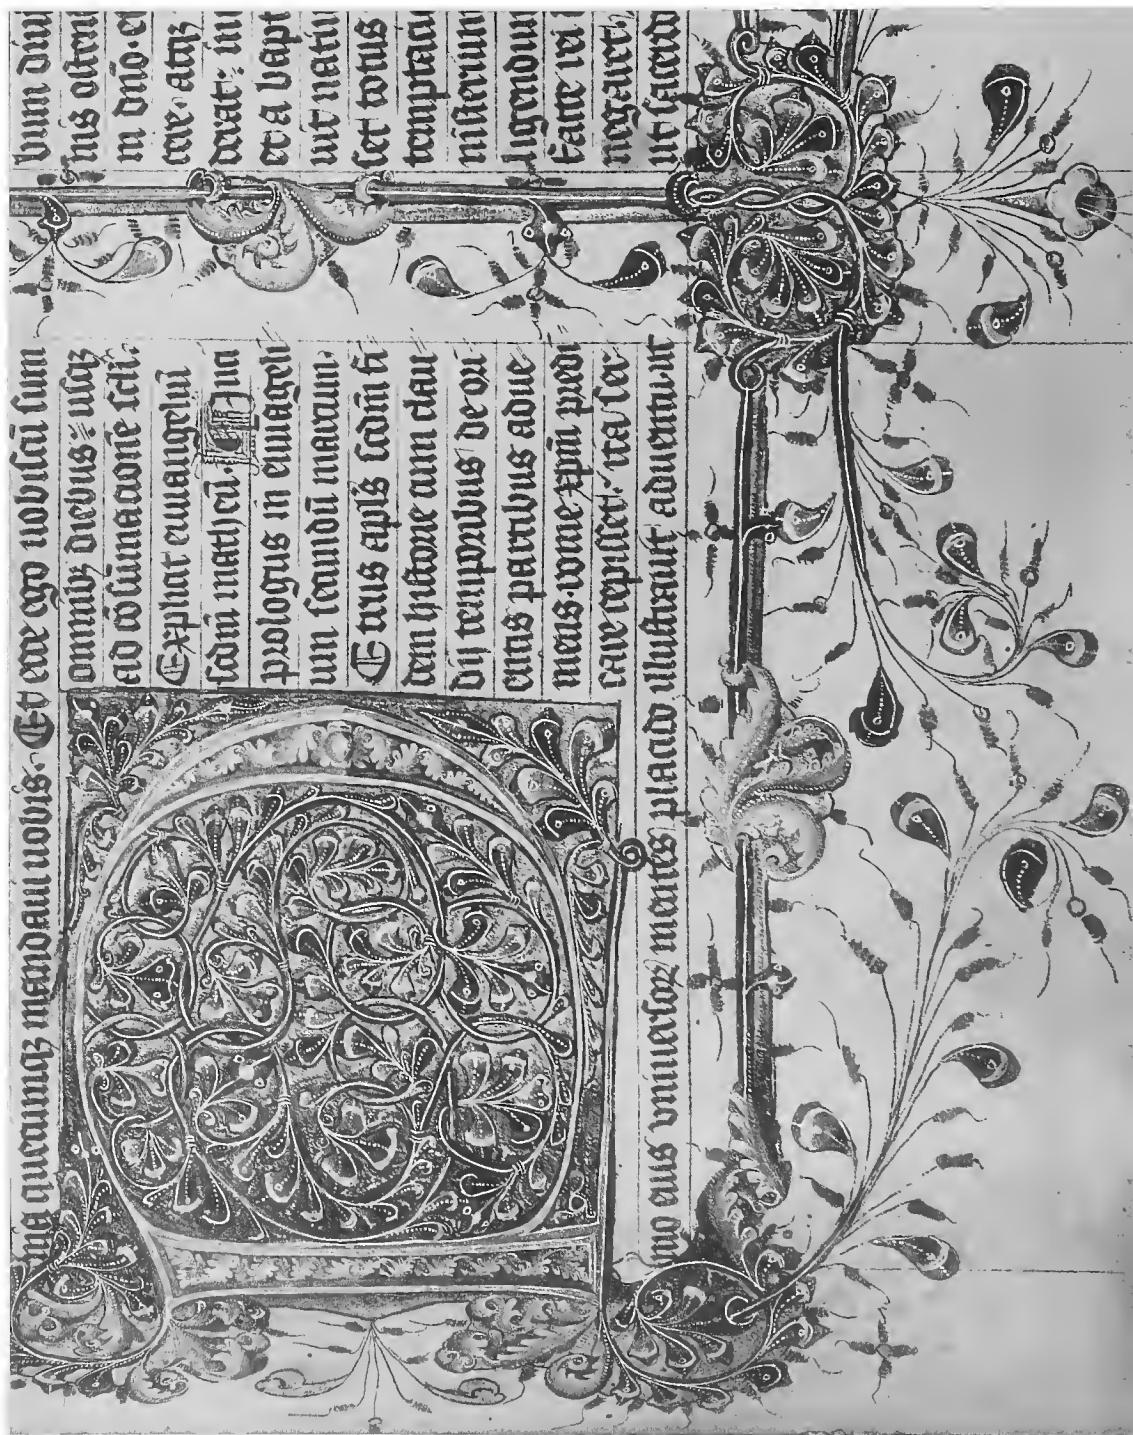 nia quecumqz mandaui uobis. Et ecce ego uobiscū sum
omnibz diebus: usqz
ad cōsumacionē scli.
Explicit euuangeliū
scdm matheū. Inci
prologus in ewageli
um secundū marcum.
Etrus apls scdm fi
dem hystorie cum clau
dij temporibus de ori
entis partibus adue
niens. rome xpm predi
care cepisset. ita ser
mo eius vniuersoz mentes placido illustrauit aduentu ut
bum diui
nis osten
in dno. et
cere. atqz
derat: in
et a bapt
uit natiu
set totus
temptaci
nisterium
ligendum
tate rei
negaret.
ut sacerdo